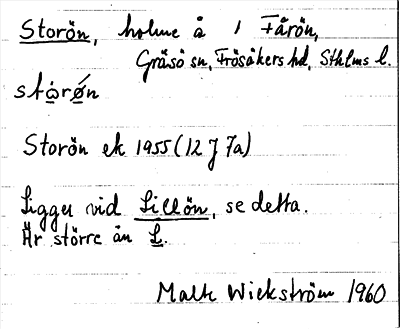 Storön, holme å 1 Fårön,
Gräsö sn, Frösåkers hd, Sthlms l.
stὼrø̀n
Storön ek 1955 (12 J 7a)
Ligger vid Lillön, se detta.
Är större än L.
Malte Wickström 1960